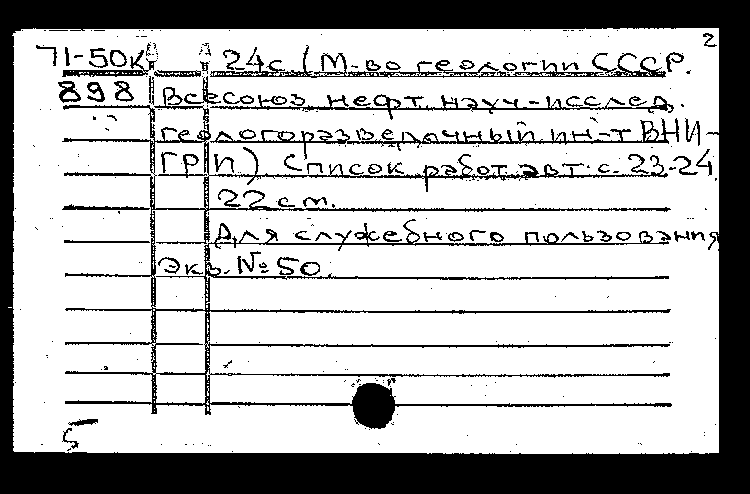 2
71-50к 24с. (М-во геологии СССР.
898 Всесоюз. нефт. науч-исслед.
геологоразведочный ин-т ВНИ-
ГРИ) Список работ авт: с. 23-24
22 см.
Для служебного пользования
Экз. № 50.
5